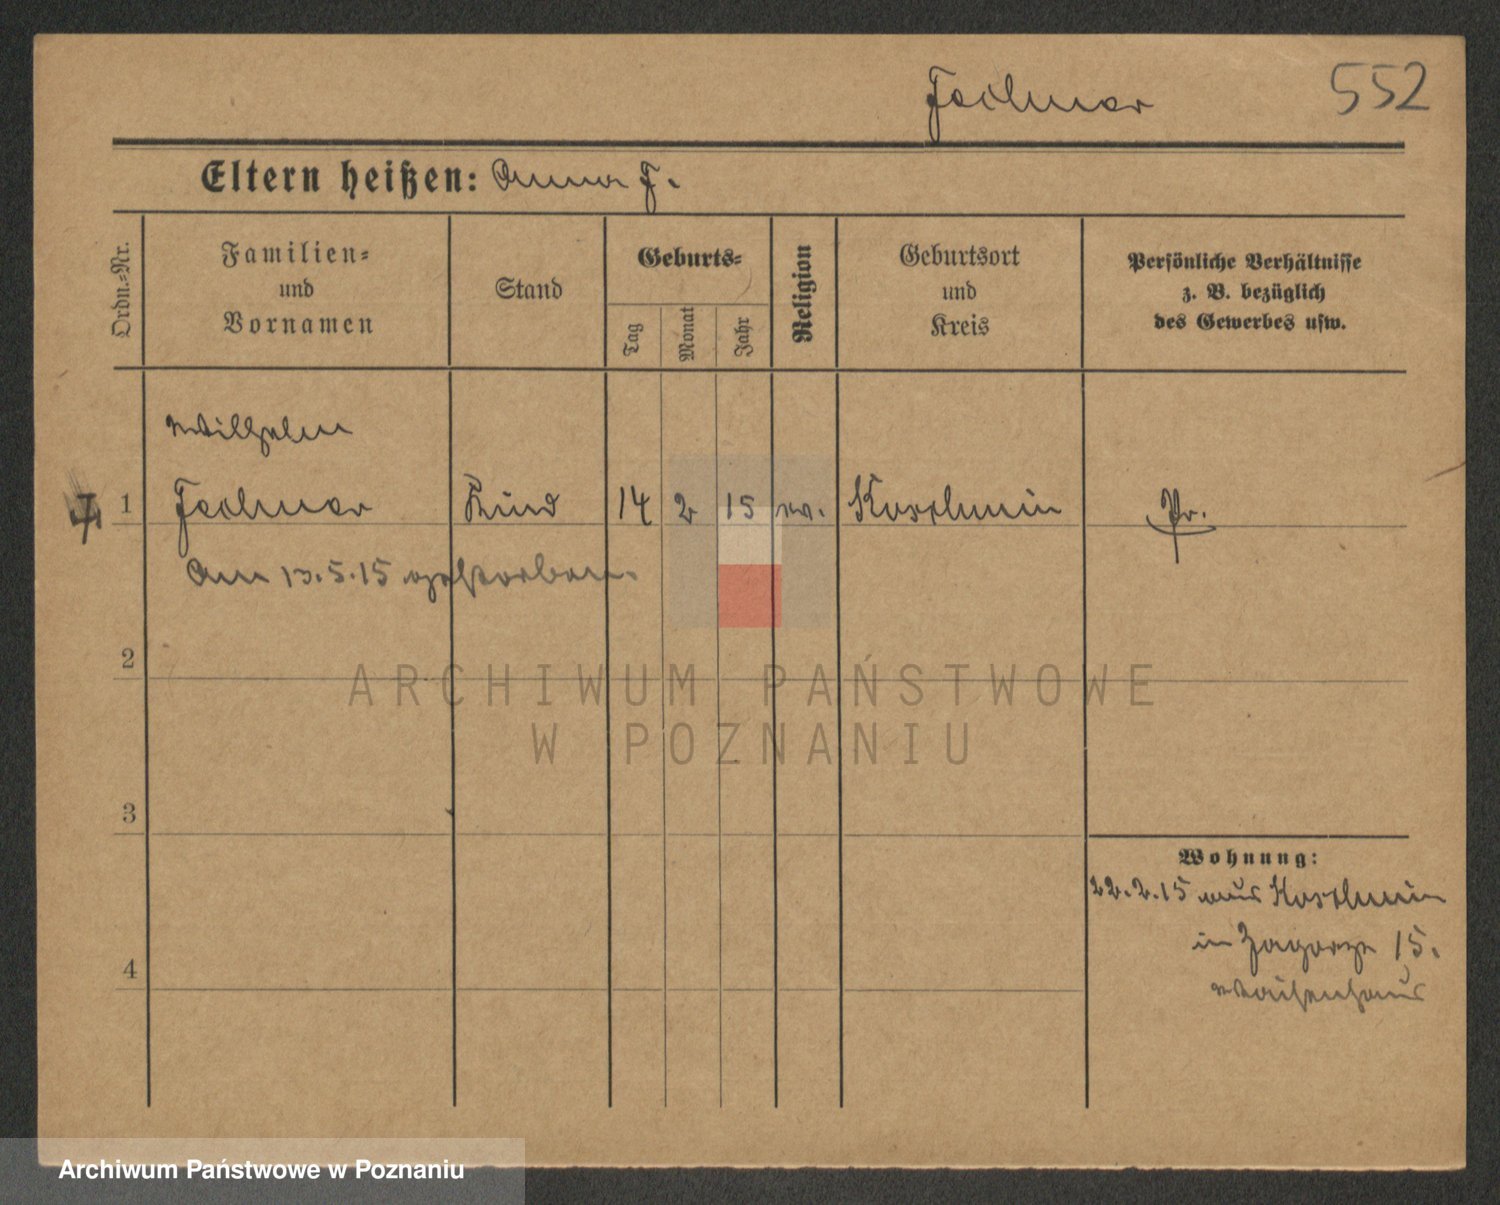 552
Eltern heißen: Anna F.
Ordn.-Nr.
Familien- und Vornamen
Stand
Geburts-
Tag
Monat
Jahr
Religion
Geburtsort und Kreis
Persönliche Verhältnisse z. B. bezüglich des Gewerbes usw.
Wilhelm
1 Kind 14 2 15 Koschmin Pr.
Am 13.5.15 gestorben.
2
3
4
Wohnung:
22.2.15 aus Koschmin
in Zagorze 15.
Waisenhaus
ARCHIWUM PAŃSTWOWE
W POZNANIU
Archiwum Państwowe w Poznaniu